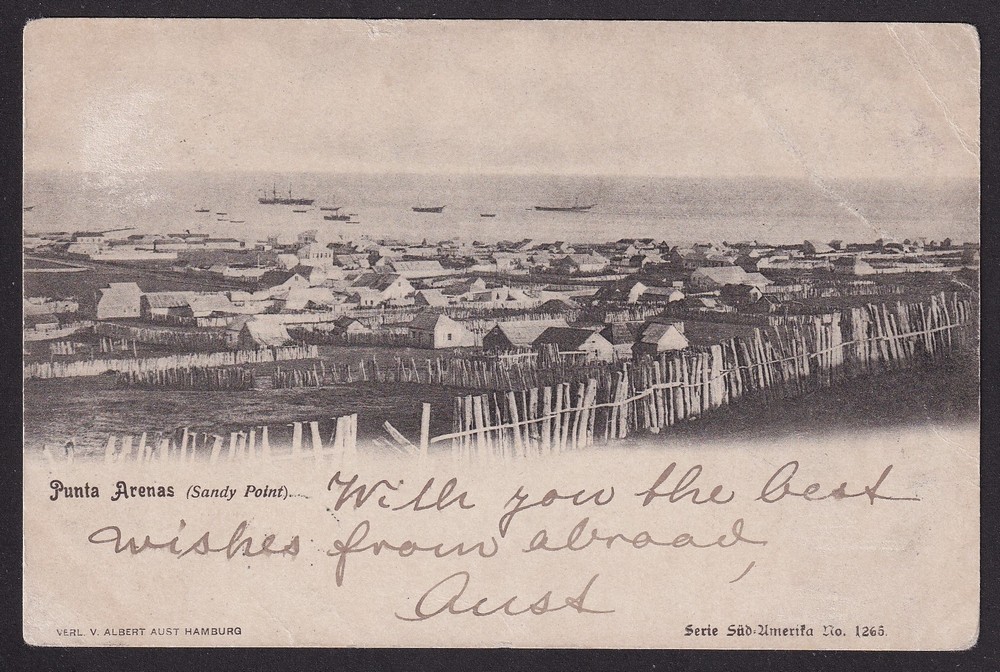 Punta Arenas (Sandy Point). With you the best
wishes from abroad,
Aust
VERL. V. ALBERT AUST HAMBURG
Serie Süd-Amerika No. 1265.